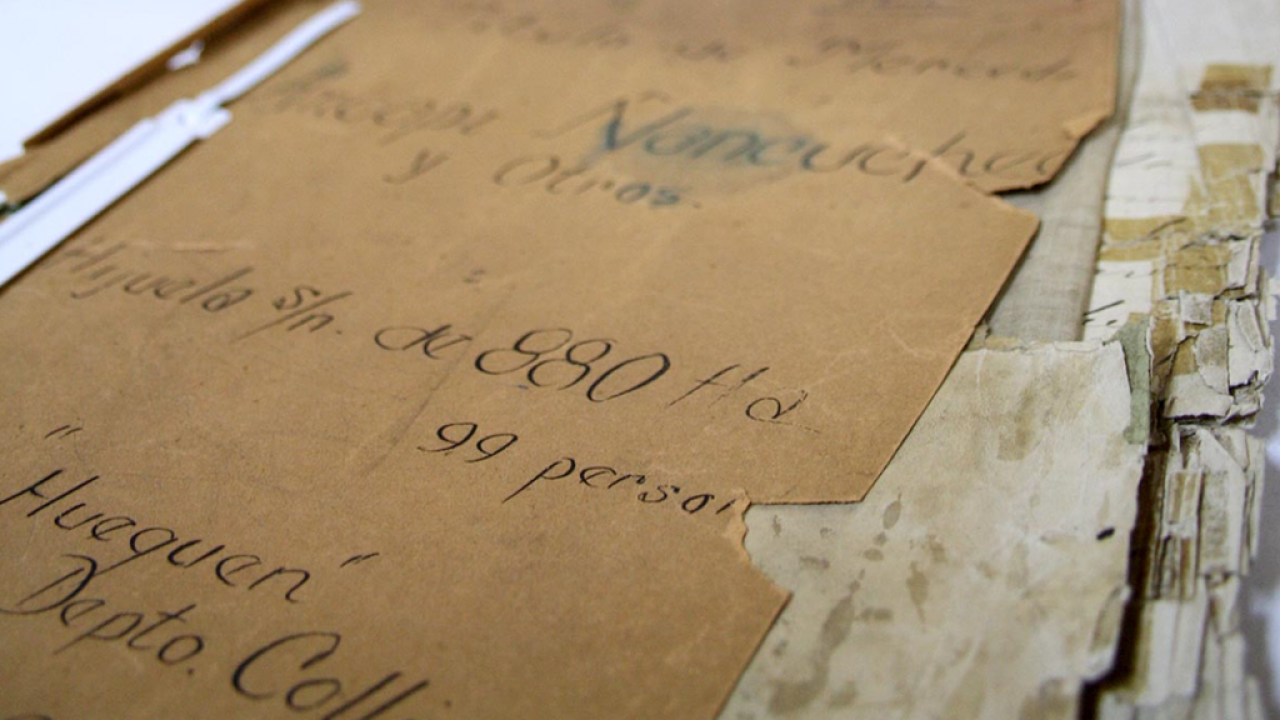 de Merced
Ñancucheo
y Otros.
Hijuela s/n. de 880 Ha
99 perso
"Huequen"
Depto. Coll